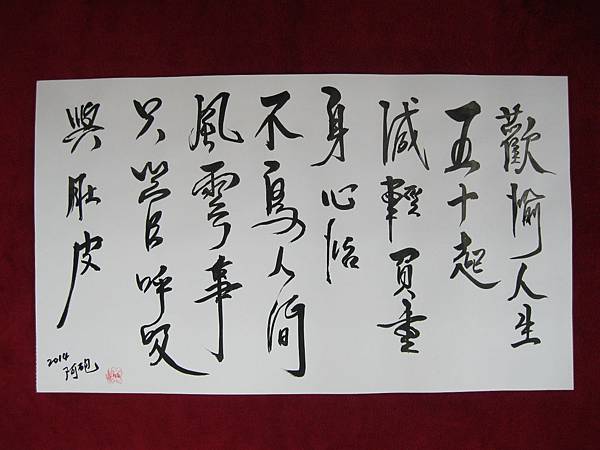 歡愉人生
五十起
減輕負重
身心怡
不鳥人間
風雲事
只管呼吸
與肚皮
2014
阿砲